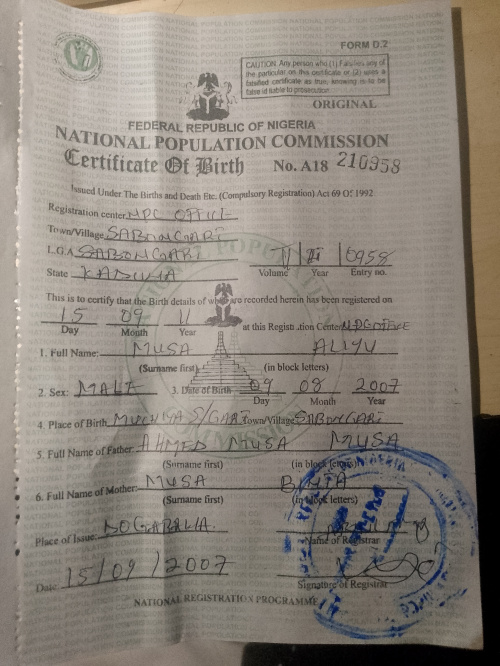 FORM D.2
CAUTION. Any person who (1) Falsifies any of
the particular on this certificate or (2) uses a
falsified certificate as true, knowing is to be
false is liable to prosecution
ORIGINAL
FEDERAL REPUBLIC OF NIGERIA
NATIONAL POPULATION COMMISSION
Certificate Of Birth No. A18 210958
Issued Under The Births and Death Etc. (Compulsory Registration) Act 69 Of 1992
Registration center NPC OFFICE
Town/Village SABON GARI
L.G.A SABON GARI
State KADUNA
0958
Volume Year Entry no.
This is to certify that the Birth details of who are recorded herein has been registered on
15 09 11 at this Registration Center NPC OFFICE
Day Month Year
1. Full Name: MUSA ALIYU
(Surname first) (in block letters)
2. Sex: MALE 3. Date of Birth 09 08 2007
Day Month Year
4. Place of Birth MUCHIYA S/GARI Town/Village SABON GARI
5. Full Name of Father: AHMED MUSA MUSA
(Surname first) (in block letters)
6. Full Name of Mother: MUSA BINTA
(Surname first) (in block letters)
Place of Issue:
Name of Registrar
Date 15/09/2007
Signature of Registrar
NATIONAL REGISTRATION PROGRAMME